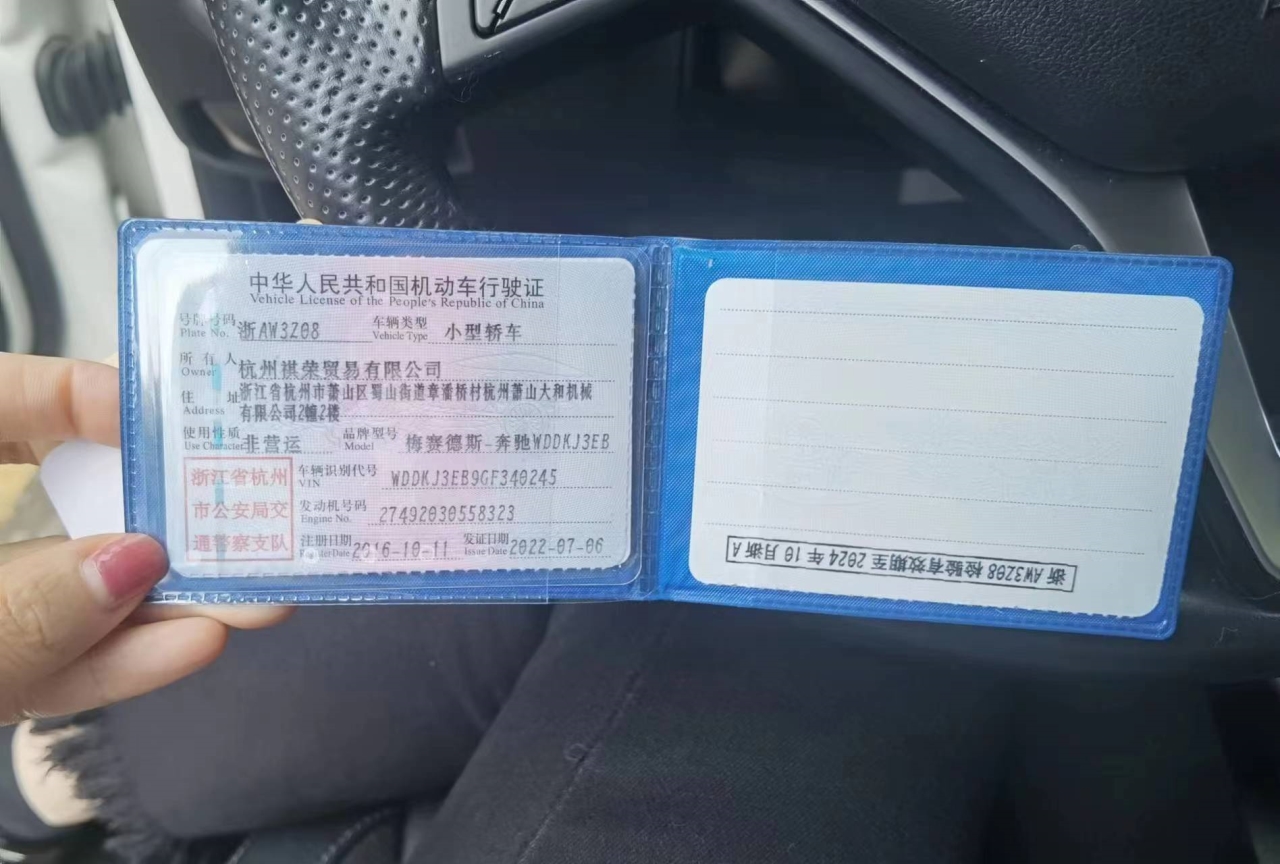 中华人民共和国机动车行驶证
Vehicle License of the People's Republic of China
号牌号码 浙AW3Z08 车辆类型 小型轿车
Plate No. Vehicle Type
所有人 杭州祺荣贸易有限公司
Owner
住址 浙江省杭州市萧山区蜀山街道章潘桥村杭州萧山大和机械
Address 有限公司2幢2楼
使用性质 非营运 品牌型号 梅赛德斯-奔驰WDDKJ3EB
Use Character Model
浙江省杭州
市公安局交
通警察支队
车辆识别代号 WDDKJ3EB9GF340245
VIN
发动机号码 27492030558323
Engine No.
注册日期 2016-10-11 发证日期 2022-07-06
Register Date Issue Date
浙AW3Z08检验有效期至2024年10月浙A